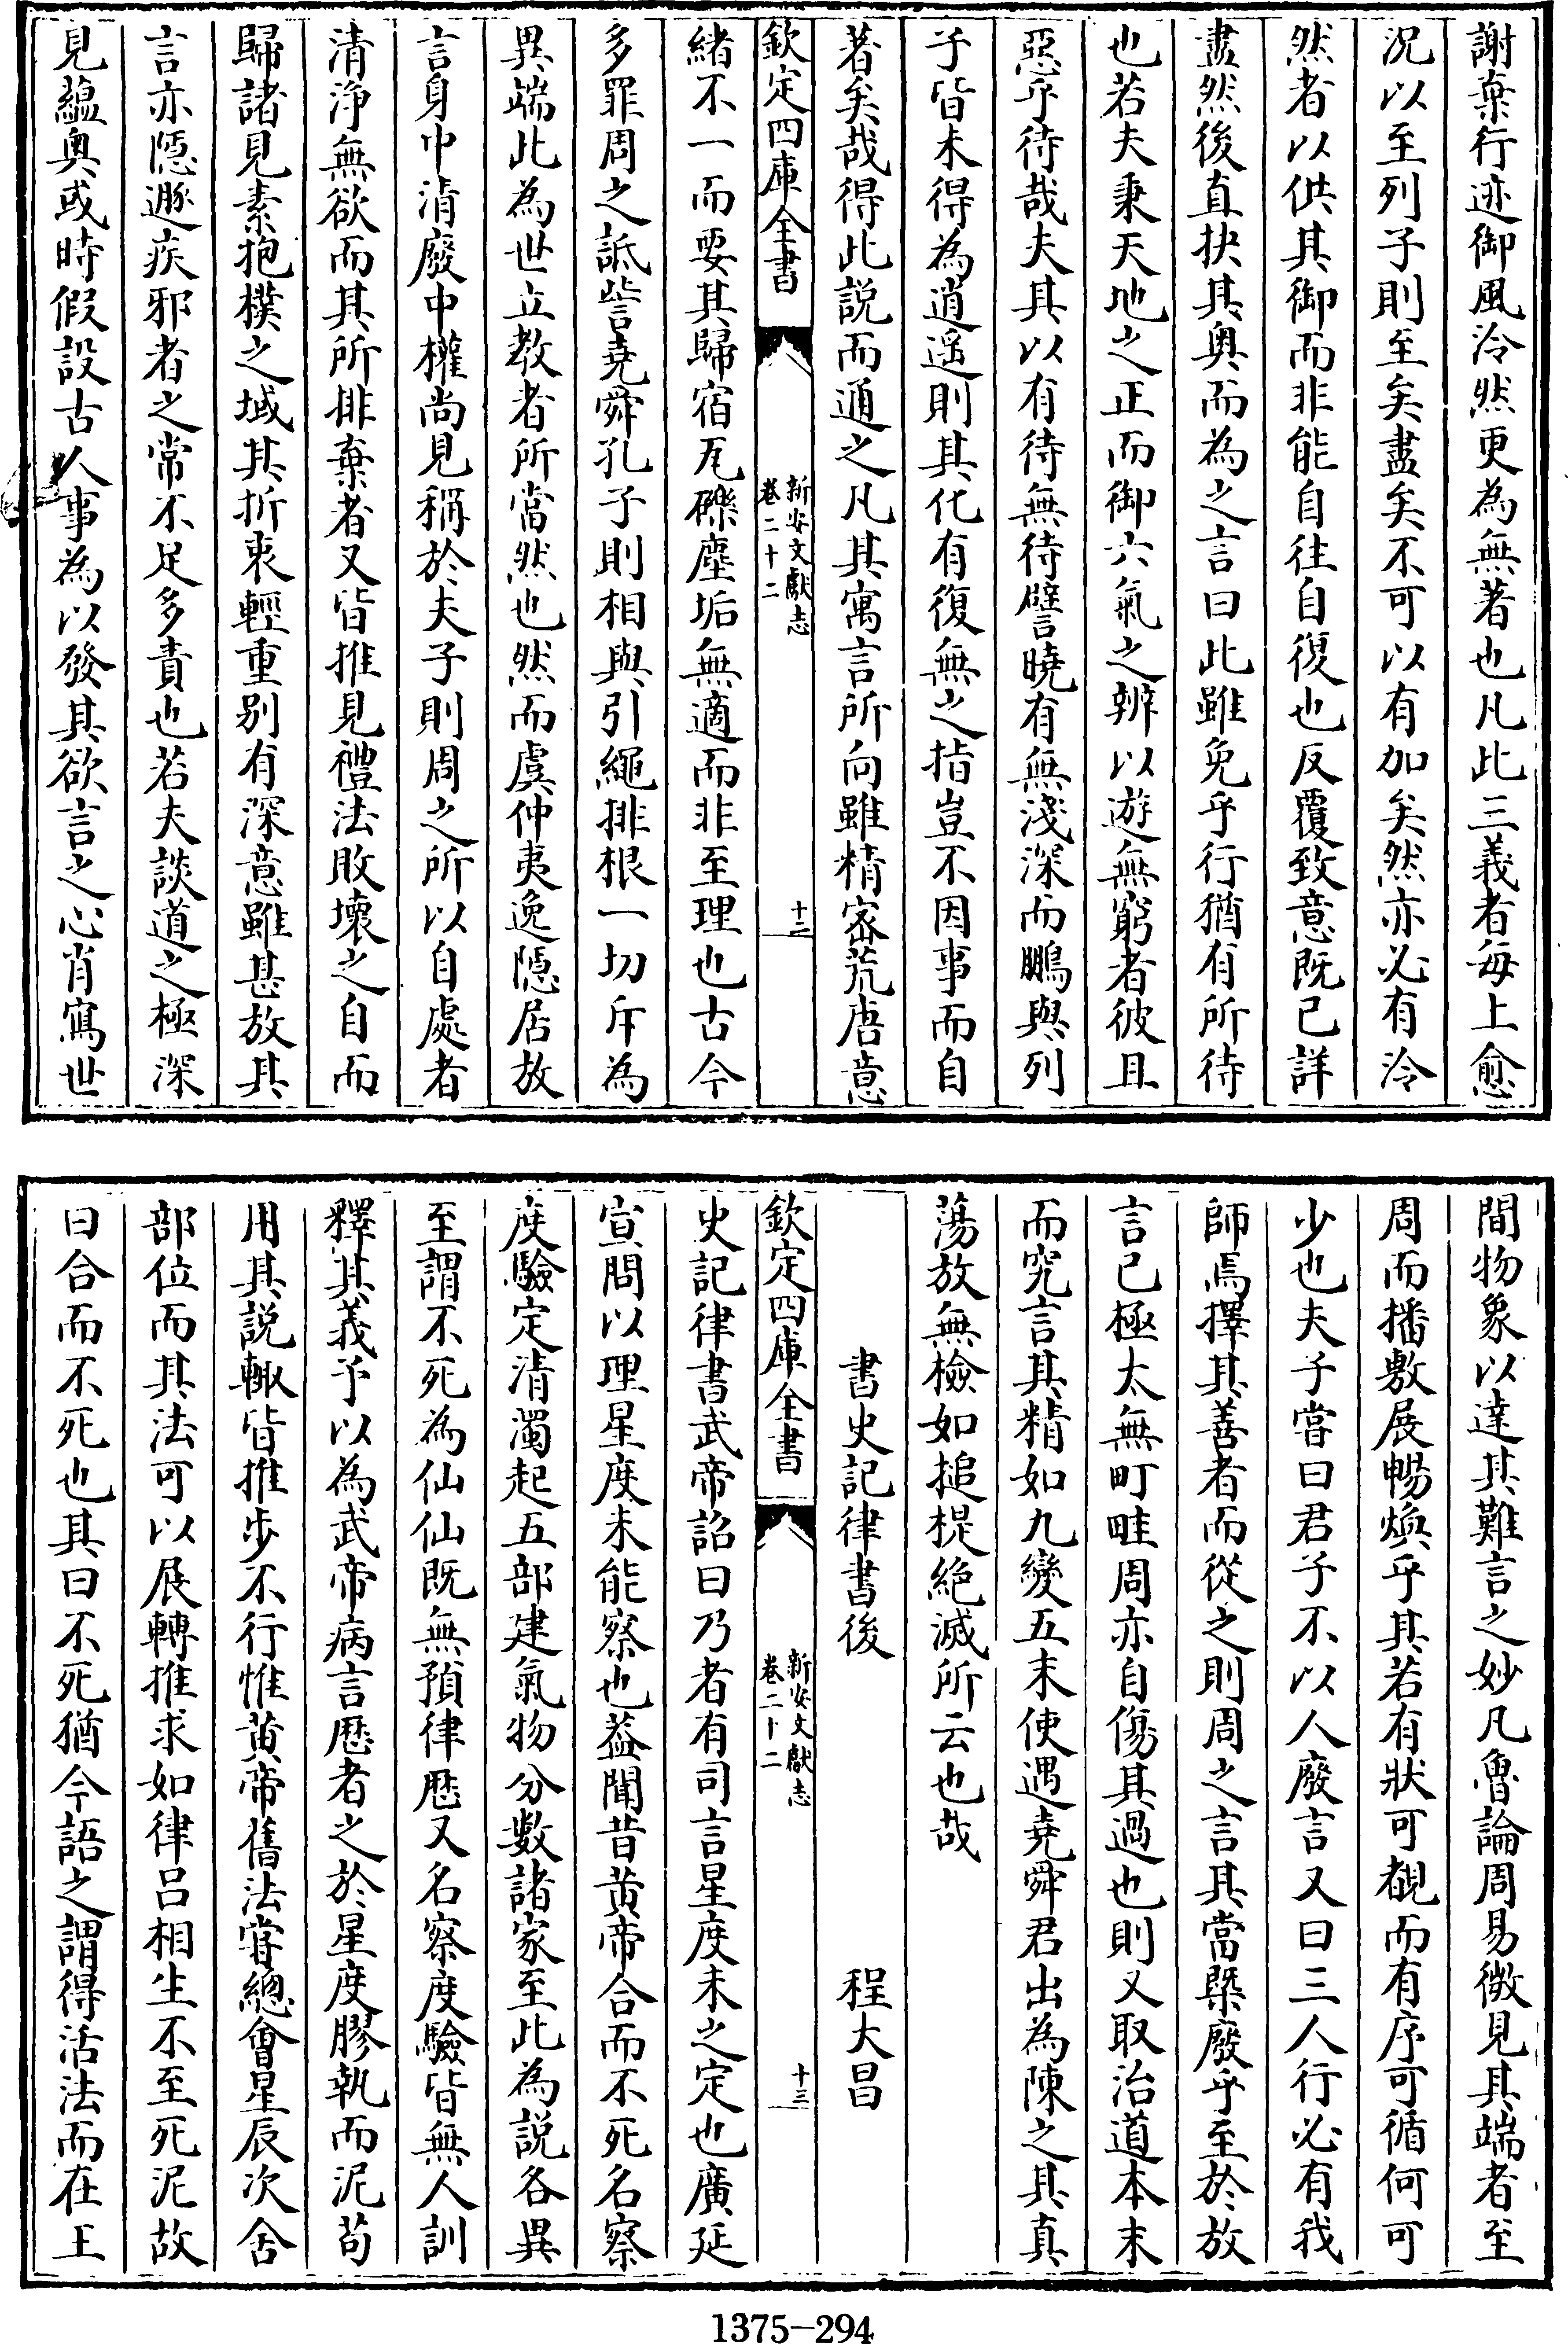 謝棄行迹御風泠然更為無著也凡此三義者每上愈
況以至列子則至矣盡矣不可以有加矣然亦必有泠
然者以供其御而非能自往自復也反覆致意既已詳
盡然後直抉其奥而為之言曰此雖免乎行猶有所待
也若夫秉天地之正而御六氣之辨以遊無窮者彼且
惡乎待哉夫其以有待無待譬曉有無淺深而鵬與列
子皆未得為逍遥則其化有復無之指豈不因事而自
著矣哉得此説而通之凡其寓言所向雖精宻荒唐意
欽定四庫全書
新安文獻志
卷二十二
十二
緒不一而要其歸宿瓦礫塵垢無適而非至理也古今
多罪周之詆訾堯舜孔子則相與引繩排根一切斥為
異端此為世立教者所當然也然而虞仲夷逸隠居放
言身中清廢中權尚見稱於夫子則周之所以自處者
清浄無欲而其所排棄者又皆推見禮法敗壊之自而
歸諸見素抱樸之域其折衷輕重别有深意雖甚放其
言亦隠遯疾邪者之常不足多責也若夫談道之極深
見藴奥或時假設古人事為以發其欲言之心肖寫世
間物象以達其難言之妙凡魯論周易微見其端者至
周而播敷展暢煥乎其若有狀可覩而有序可循何可
少也夫子嘗曰君子不以人廢言又曰三人行必有我
師焉擇其善者而從之則周之言其當槩廢乎至於放
言已極太無町畦周亦自傷其過也則又取治道本末
而究言其精如九變五末使遇堯舜君出為陳之其真
蕩放無檢如搥提絶滅所云也哉
書史記律書後
程大昌
欽定四庫全書
新安文獻志
卷二十二
十三
史記律書武帝詔曰乃者有司言星度未之定也廣延
宣問以理星度未能察也葢聞昔黄帝合而不死名察
度驗定清濁起五部建氣物分數諸家至此為説各異
至謂不死為仙仙既無預律厯又名察度驗皆無人訓
釋其義予以為武帝病言厯者之於星度膠執而泥茍
用其説輙皆推步不行惟黄帝舊法甞總會星辰次舍
部位而其法可以展轉推求如律吕相生不至死泥故
曰合而不死也其曰不死猶今語之謂得活法而在王
1375-294